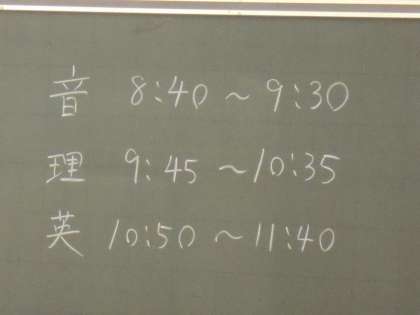 音 8:40 〜 9:30
理 9:45 〜 10:35
英 10:50 〜 11:40